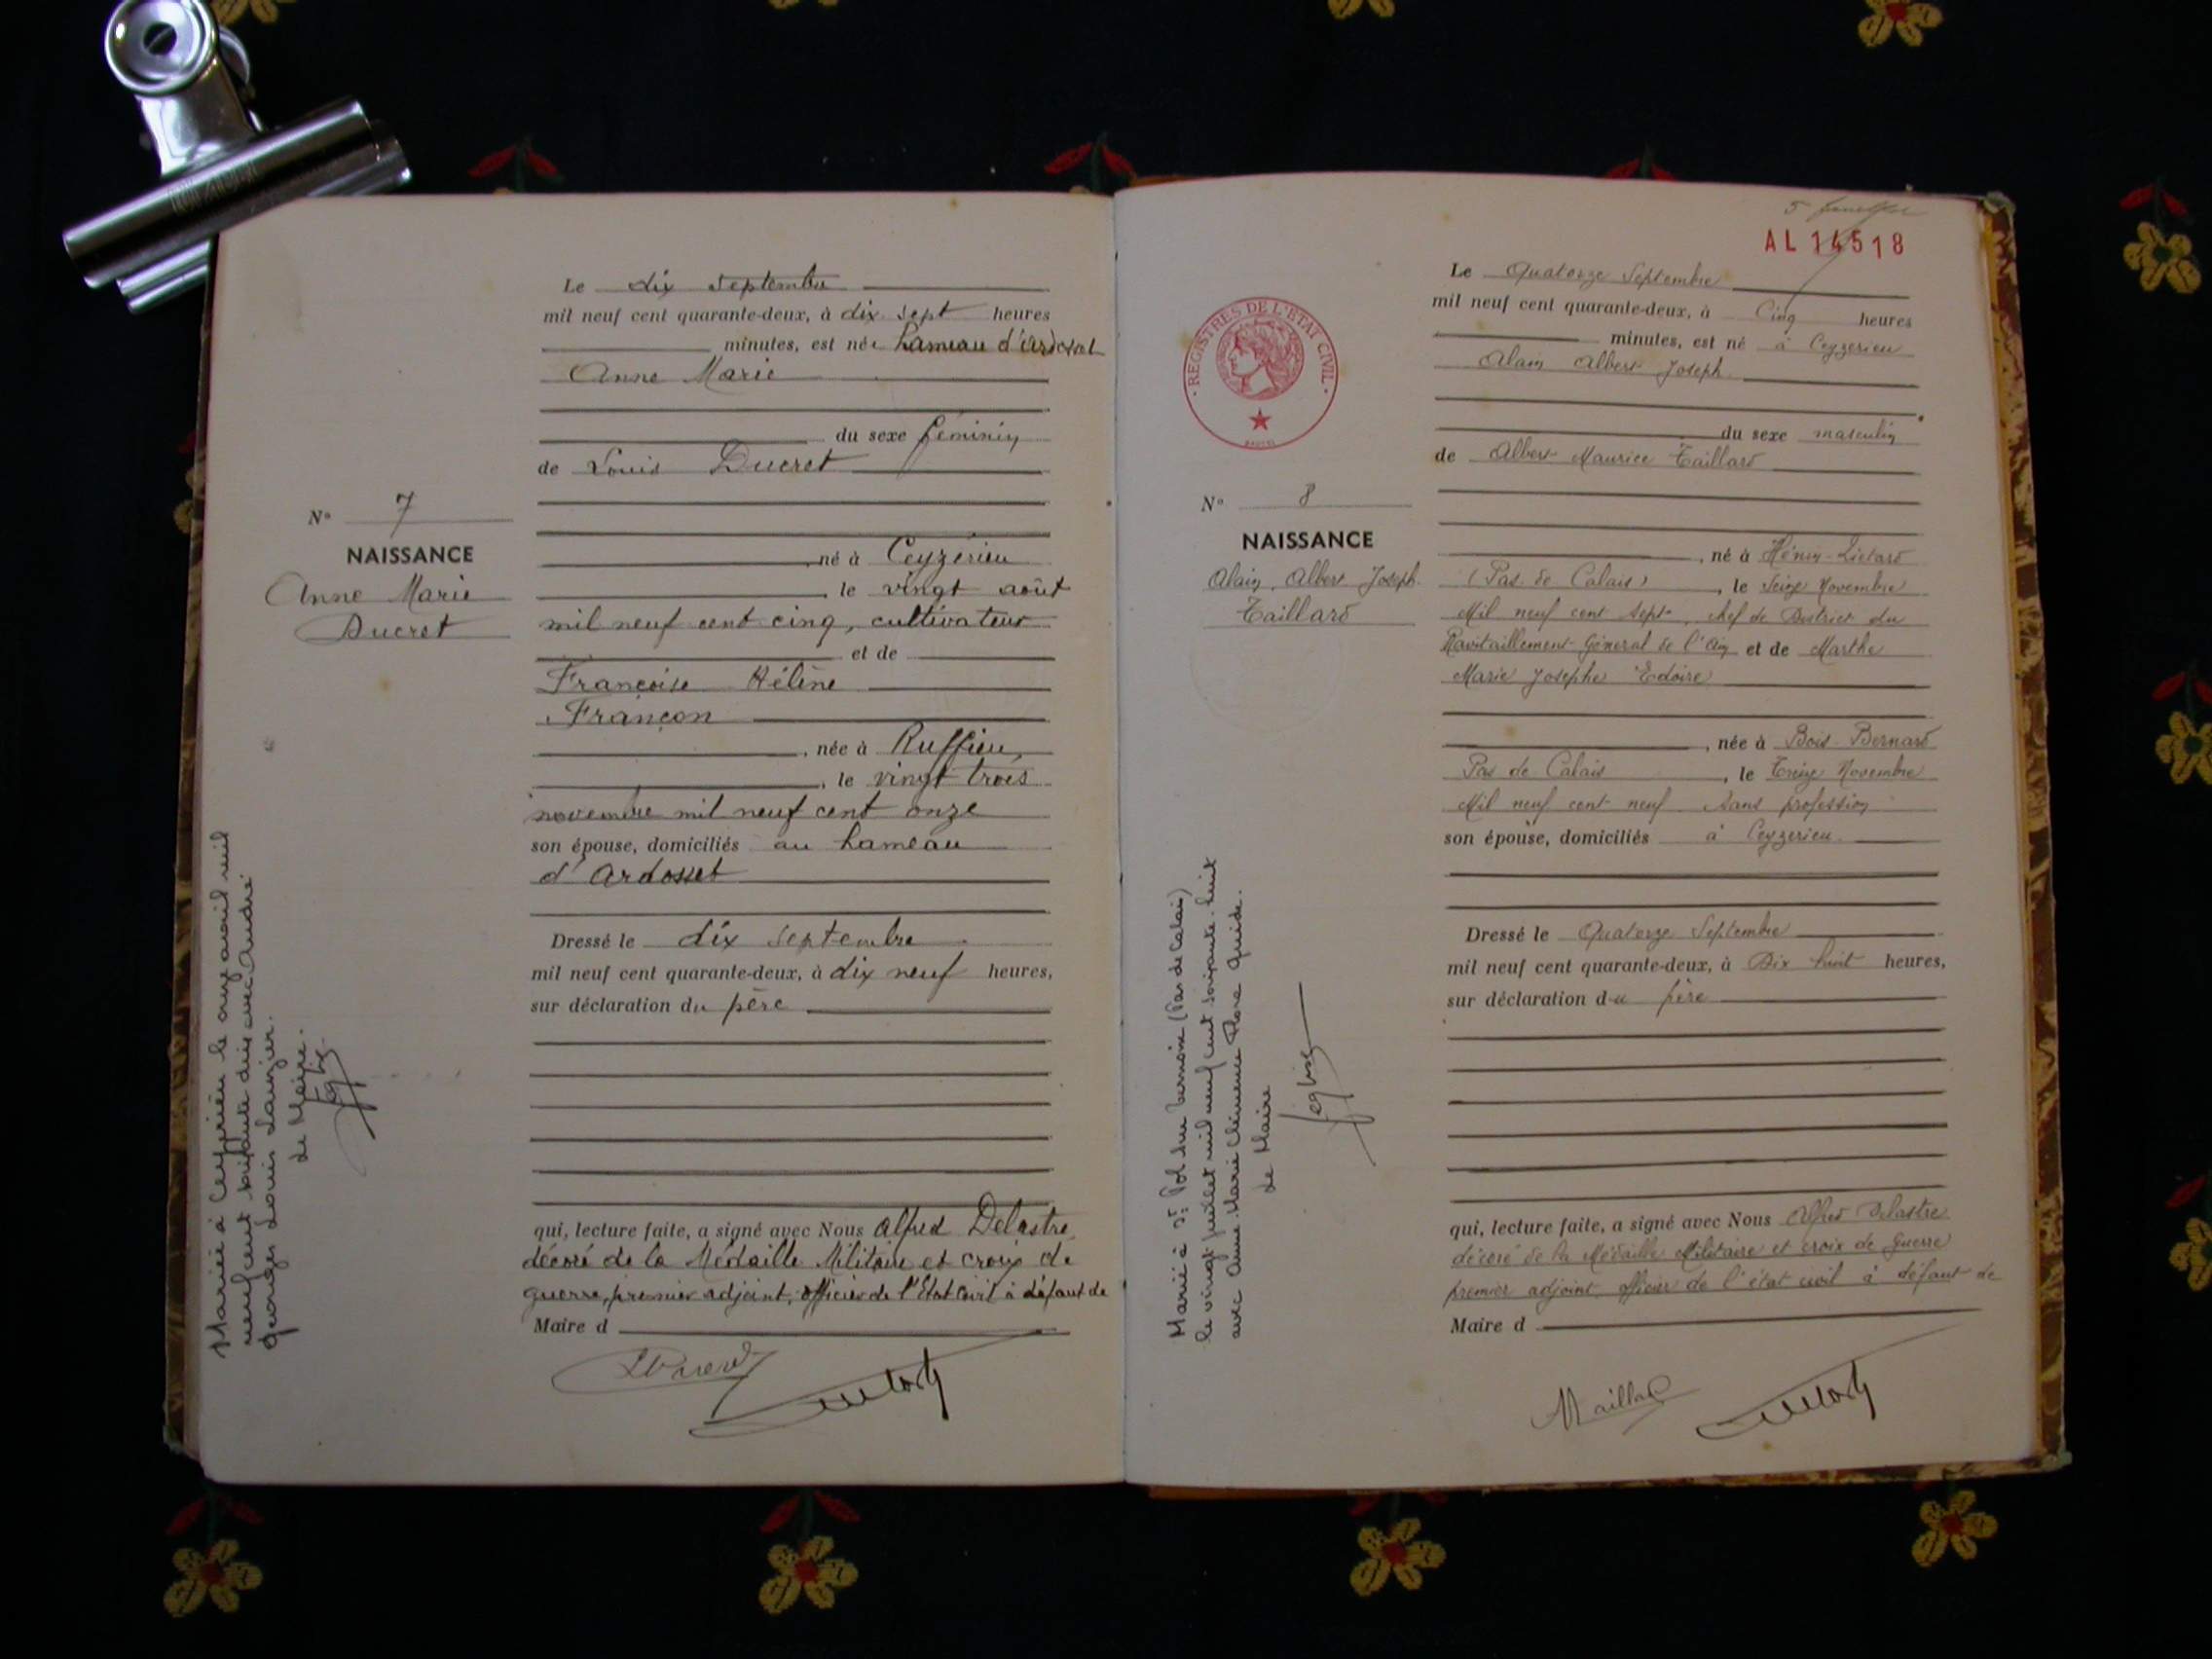 Le dix septembre
mil neuf cent quarante-deux, à dix sept heures
minutes, est née hameau d'
Anne Marie
du sexe féminin
de Louis Ducret
né à Ceyzérieu
le vingt août
mil neuf cent cinq, cultivateur
et de
Françoise Hélène
Françon
, née à Ruffieu,
, le vingt trois
novembre mil neuf cent onze
son épouse, domiciliés au hameau
d'Ardosset
Dressé le dix septembre
mil neuf cent quarante-deux, à dix neuf heures,
sur déclaration du père
qui, lecture faite, a signé avec Nous Alfred Delastre,
décoré de la Médaille Militaire et croix de
guerre, premier adjoint, officier de l'Etat Civil à défaut de
Maire d
N° 7
NAISSANCE
Anne Marie
Ducret
Mariée à Ceyzérieu le onze avril mil
neuf cent soixante dix avec André
Georges Louis
Le Maire.
5
AL 14518
REGISTRES DE L'ETAT CIVIL
N° 8
NAISSANCE
Alain, Albert Joseph
Taillard
Le Quatorze Septembre
mil neuf cent quarante-deux, à Cinq heures
minutes, est né à Ceyzerieu
Alain Albert Joseph
du sexe masculin
de Albert Maurice Taillard
, né à Hénin-Liétard
(Pas de Calais) , le Seize Novembre
Mil neuf cent sept, chef de District du
Ravitaillement Général de l'Ain et de Marthe
Marie Josephe Edoire
, née à Bois-Bernard
Pas de Calais , le Treize Novembre
Mil neuf cent neuf Sans profession
son épouse, domiciliés à Ceyzerieu
Dressé le Quatorze Septembre
mil neuf cent quarante-deux, à Dix huit heures,
sur déclaration du père
qui, lecture faite, a signé avec Nous Alfred Delastre
décoré de la Médaille Militaire et croix de Guerre
premier adjoint officier de l'état civil à défaut de
Maire d
Marié à St Pol sur Ternoise (Pas de Calais)
le vingt juillet mil neuf cent soixante-huit
avec Anne-Marie Clémence Flore Guide.
Le Maire